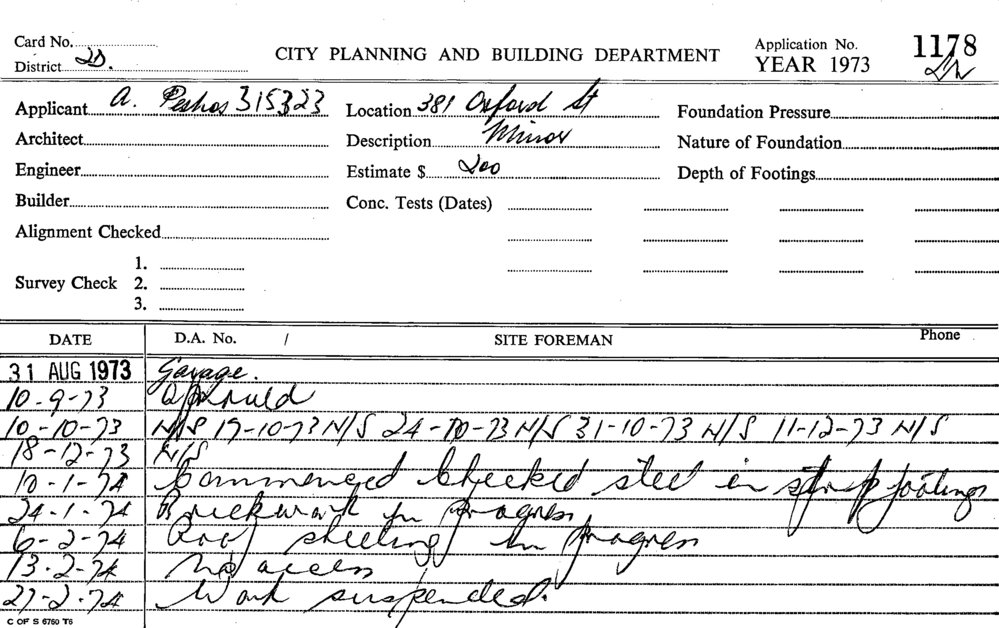 Card No.
District 2D.
CITY PLANNING AND BUILDING DEPARTMENT
Application No. 1178
YEAR 1973
Applicant A. Peshos 315323
Location 381 Oxford St
Foundation Pressure
Architect
Description Minor
Nature of Foundation
Engineer
Estimate $ 200
Depth of Footings
Builder
Conc. Tests (Dates)
Alignment Checked
Survey Check
1.
2.
3.
DATE D.A. No. / SITE FOREMAN Phone
31 AUG 1973 Garage.
10-9-73 Approved
10-10-73 N/S 17-10-73 N/S 24-10-73 N/S 31-10-73 N/S 11-12-73 N/S
18-12-73 N/S
10-1-74 Commenced Checked steel in strip footings
24-1-74 Brickwork in progress
6-2-74 Roof sheeting in progress
13-2-74 No access
27-2-74 Work suspended.
C OF S 6760 T6